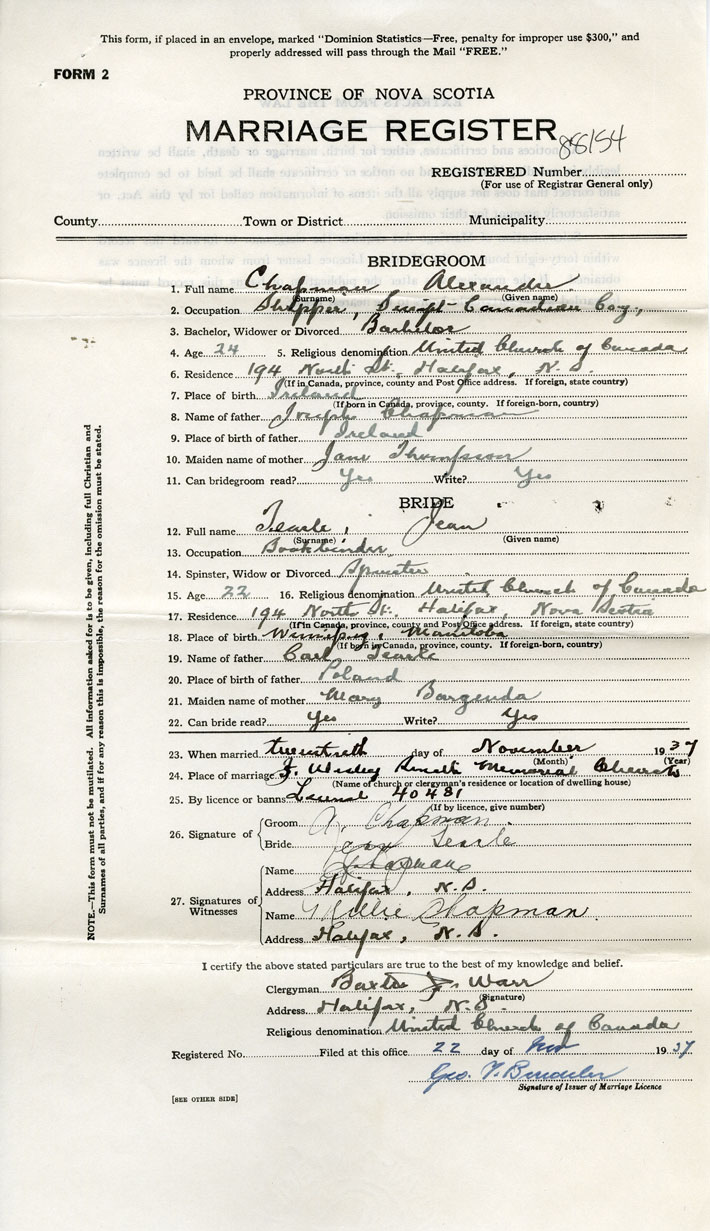 This form, if placed in an envelope, marked "Dominion Statistics—Free, penalty for improper use $300," and
properly addressed will pass through the Mail "FREE."
FORM 2
PROVINCE OF NOVA SCOTIA
MARRIAGE REGISTER
88154
REGISTERED Number
(For use of Registrar General only)
County Town or District Municipality
BRIDEGROOM
1. Full name Chapman Alexander
(Surname) (Given name)
2. Occupation Shipper, Swift-Canadian Coy.,
3. Bachelor, Widower or Divorced Bachelor
4. Age 24 5. Religious denomination United Church of Canada
6. Residence 194 North St., Halifax, N. S.
(If in Canada, province, county and Post Office address. If foreign, state country)
7. Place of birth Ireland
(If born in Canada, province, county. If foreign-born, country)
8. Name of father Joseph Chapman
9. Place of birth of father Ireland
10. Maiden name of mother Jane Thompson
11. Can bridegroom read? Yes Write? Yes
BRIDE
12. Full name Tearle, Jean
(Surname) (Given name)
13. Occupation Bookbinder
14. Spinster, Widow or Divorced Spinster
15. Age 22 16. Religious denomination United Church of Canada
17. Residence 194 North St., Halifax, Nova Scotia
(If in Canada, province, county and Post Office address. If foreign, state country)
18. Place of birth Winnipeg, Manitoba
(If born in Canada, province, county. If foreign-born, country)
19. Name of father Carl Tearle
20. Place of birth of father Poland
21. Maiden name of mother Mary Bargenda
22. Can bride read? Yes Write? Yes
23. When married twentieth day of November 1937
(Month) (Year)
24. Place of marriage J. Wesley Smith Memorial Church
(Name of church or clergyman's residence or location of dwelling house)
25. By licence or banns License 40481
(If by licence, give number)
26. Signature of
Groom A. Chapman
Bride Jean Tearle
27. Signatures of Witnesses
Name Chapman
Address Halifax, N.S.
Name Millie Chapman
Address Halifax, N.S.
I certify the above stated particulars are true to the best of my knowledge and belief.
Clergyman Baxter J. Warr
(Signature)
Address Halifax, N.S.
Religious denomination United Church of Canada
Registered No. Filed at this office 22 day of Nov 1937
Geo.
Signature of Issuer of Marriage Licence
[SEE OTHER SIDE]
NOTE.—This form must not be mutilated. All information asked for is to be given, including full Christian and
Surnames of all parties, and if for any reason this is impossible, the reason for the omission must be stated.